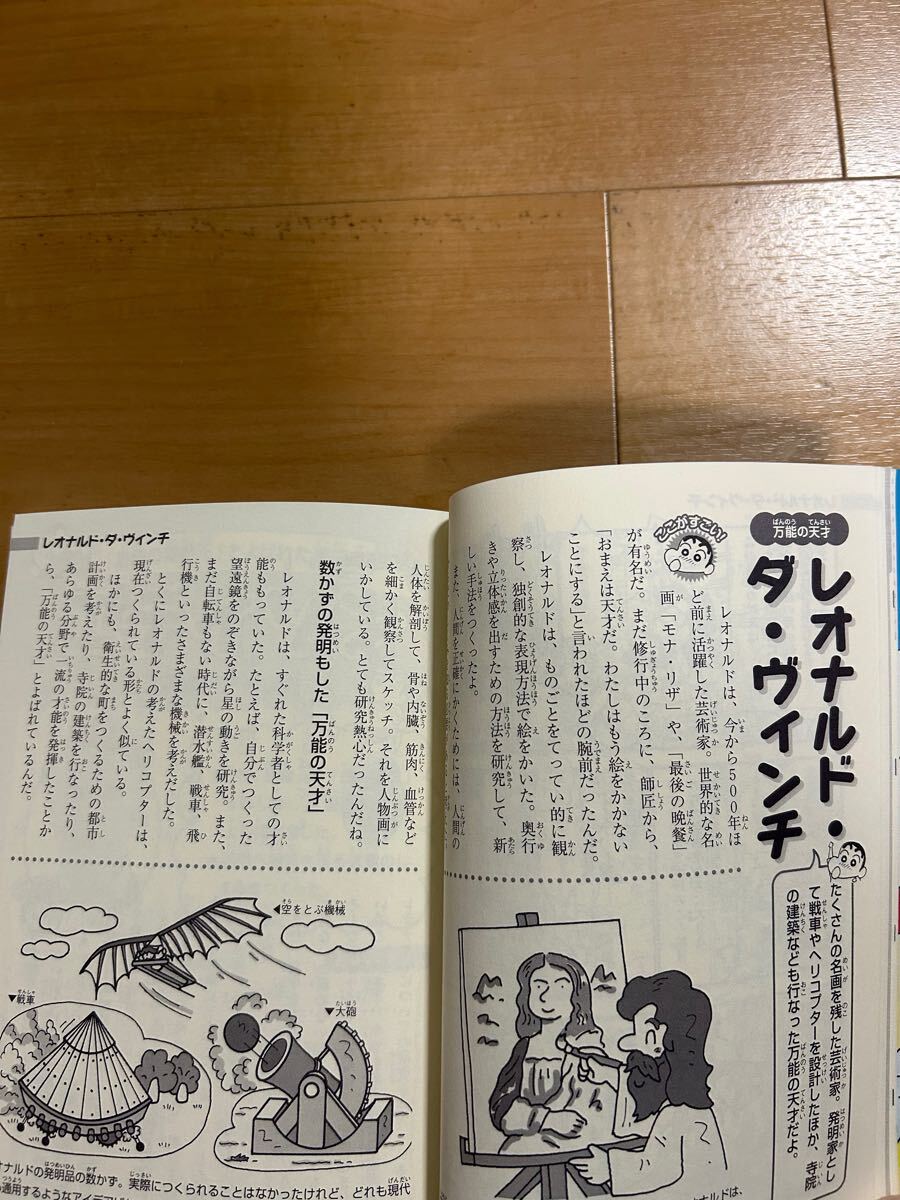 万能の天才
レオナルド・
ダ・ヴィンチ
たくさんの名画を残した芸術家。発明家とし
て戦車やヘリコプターを設計したほか、寺院
の建築なども行なった万能の天才だよ。
ここがすごい!
レオナルドは、今から500年ほ
ど前に活躍した芸術家。世界的な名
画「モナ・リザ」や、「最後の晩餐」
が有名だ。まだ修行中のころに、師匠から、
「おまえは天才だ。わたしはもう絵をかかない
ことにする」と言われたほどの腕前だったんだ。
レオナルドは、ものごとをてってい的に観
察し、独創的な表現方法で絵をかいた。奥行
きや立体感を出すための方法を研究して、新
しい手法をつくったよ。
また、人間を正確にかくためには、人間の
レオナルド・ダ・ヴィンチ
人体を解剖して、骨や内臓、筋肉、血管など
を細かく観察してスケッチ。それを人物画に
いかしている。とても研究熱心だったんだね。
数かずの発明もした「万能の天才」
レオナルドは、すぐれた科学者としての才
能ももっていた。たとえば、自分でつくった
望遠鏡をのぞきながら星の動きを研究。また、
まだ自転車もない時代に、潜水艦、戦車、飛
行機といったさまざまな機械を考えだした。
とくにレオナルドの考えたヘリコプターは、
現在つくられている形とよく似ている。
ほかにも、衛生的な町をつくるための都市
計画を考えたり、寺院の建築を行なったり、
あらゆる分野で一流の才能を発揮したことか
ら、「万能の天才」とよばれているんだ。
◀空をとぶ機械
▼戦車
▼大砲
オナルドの発明品の数かず。実際につくられることはなかったけれど、どれも現代
通用するようなアイデア
ナルドは、